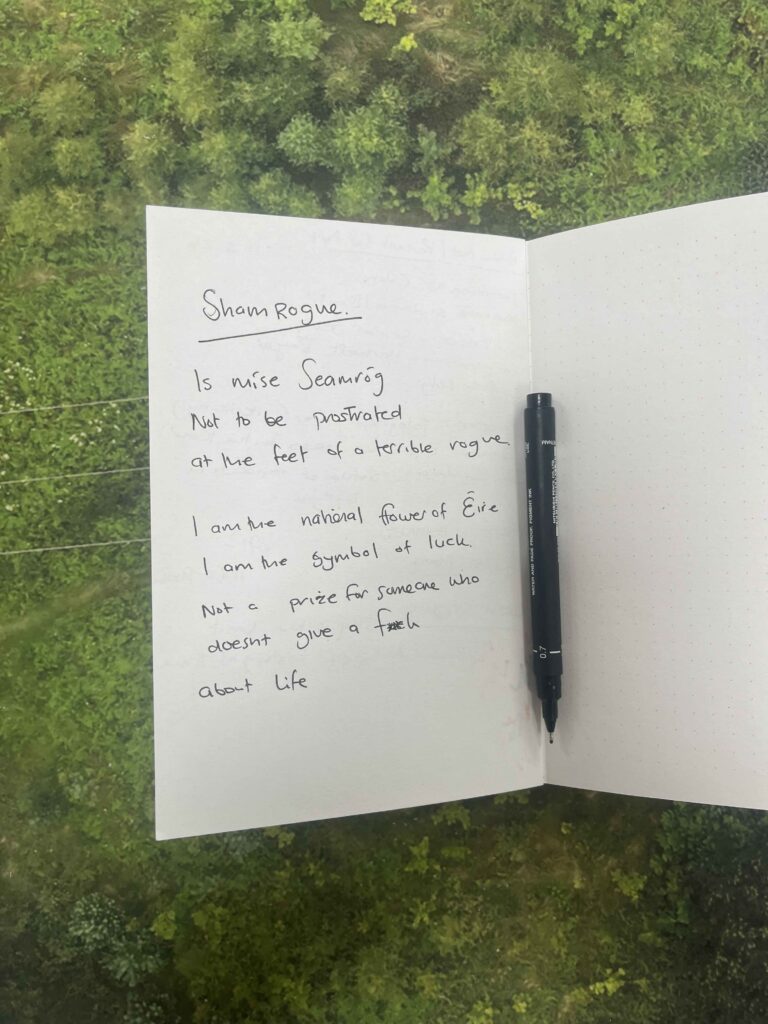 Shamrogue.
Is mise Seamróg
Not to be prostrated
at the feet of a terrible rogue.
I am the national flower of Éire
I am the symbol of luck.
Not a prize for someone who
doesnt give a f
about life
WATER AND FADE PROOF, PIGMENT INK
0.7